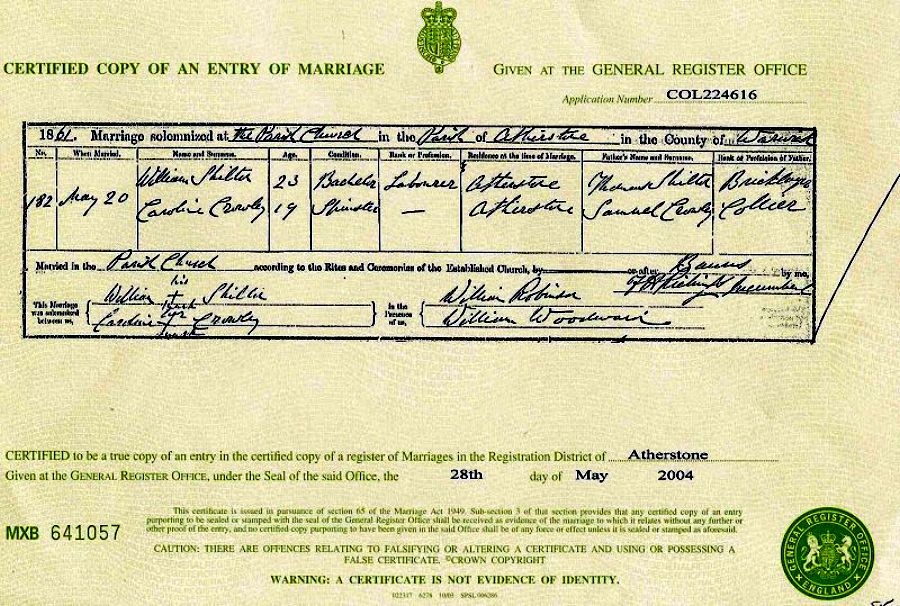 CERTIFIED COPY OF AN ENTRY OF MARRIAGE
GIVEN AT THE GENERAL REGISTER OFFICE
Application Number COL224616
1861. Marriage solemnized at the Parish Church in the Parish of Atherstone in the County of Warwick
No. When Married. Name and Surname. Age. Condition. Rank or Profession. Residence at the time of Marriage. Father's Name and Surname. Rank or Profession of Father.
William Shilter 23 Bachelor Labourer Atherstone Thomas Shilter Bricklayer
182 May 20
Caroline Crowley 19 Spinster — Atherstone Samuel Crowley Collier
Married in the Parish Church according to the Rites and Ceremonies of the Established Church, by or after Banns by me,
his
William + Shilter
mark
Incumbent
This Marriage was solemnized between us,
Caroline + Crowley
her
mark
in the Presence of us,
William Robinson
William Woodward
CERTIFIED to be a true copy of an entry in the certified copy of a register of Marriages in the Registration District of Atherstone
Given at the GENERAL REGISTER OFFICE, under the Seal of the said Office, the 28th day of May 2004
MXB 641057
This certificate is issued in pursuance of section 65 of the Marriage Act 1949. Sub-section 3 of that section provides that any certified copy of an entry
purporting to be sealed or stamped with the seal of the General Register Office shall be received as evidence of the marriage to which it relates without any further or
other proof of the entry, and no certified copy purporting to have been given in the said Office shall be of any force or effect unless it is sealed or stamped as aforesaid.
CAUTION: THERE ARE OFFENCES RELATING TO FALSIFYING OR ALTERING A CERTIFICATE AND USING OR POSSESSING A
FALSE CERTIFICATE. ©CROWN COPYRIGHT
WARNING: A CERTIFICATE IS NOT EVIDENCE OF IDENTITY.
022317 6278 10/03 SPSL 006286
GENERAL REGISTER OFFICE
ENGLAND